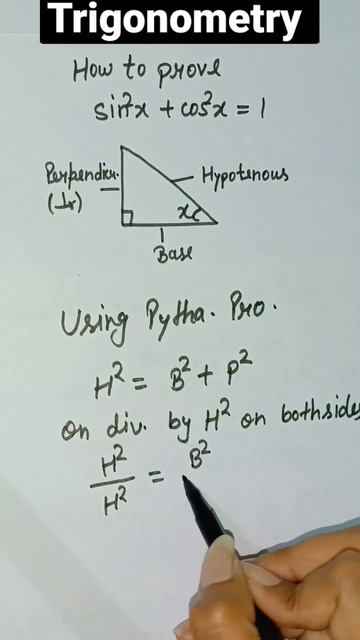 Trigonometry
How to prove
sin²x + cos²x = 1
Perpendicu.
(⊥r)
Hypotenous
x
Base
Using Pytha. Pro.
H² = B² + P²
on div. by H² on bothsides
H²/H² = B²